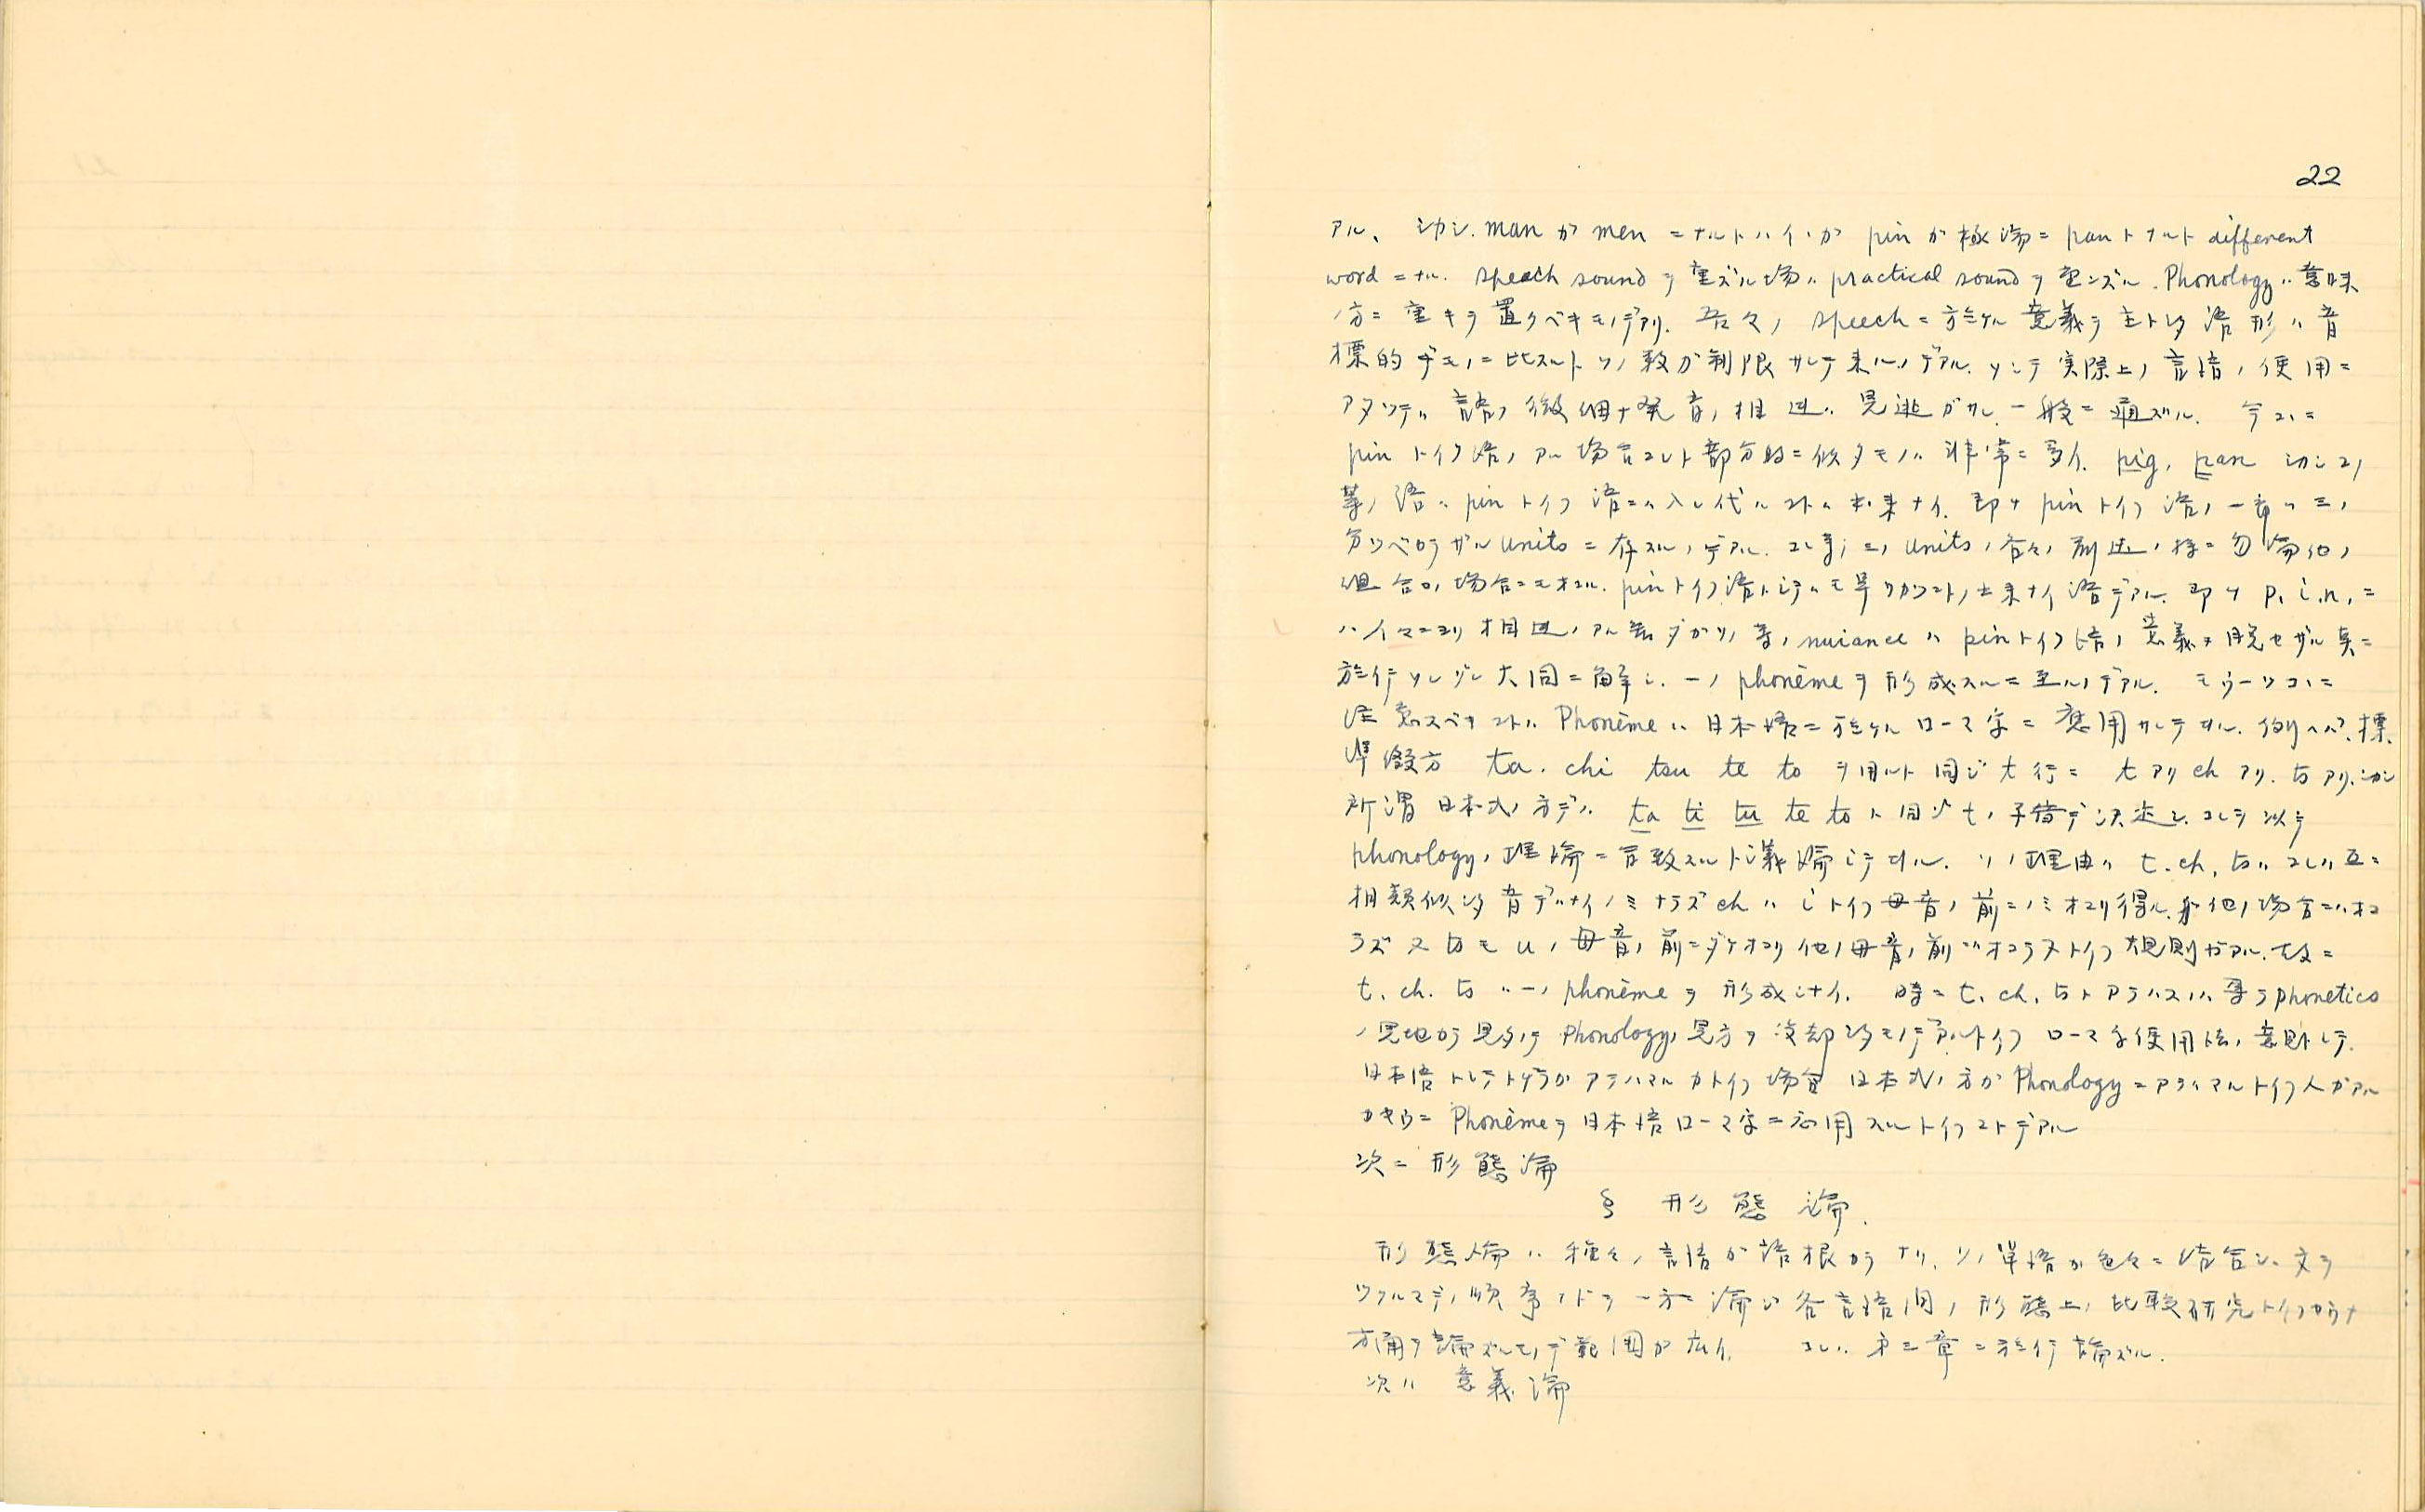 22
アル、シカシ. man ガ men ニナルトハイヽガ pin ガ極端ニ pan トナルト different
word ニナル. speech sound ヲ重ズル場ハ practical sound ヲ重ンズル. Phonology ハ意味
ノ方ニ重キヲ置クベキモノデアリ. 吾々ノ speech ニ於ケル意義ヲ主トシタ語形ハ音
標的ナモノニ比スルトソノ数ガ制限サレテ来ルノデアル. ソシテ実際上ノ言語ノ使用ニ
アタツテハ言語ノ微細ナ発音ノ相違ハ見逃ガサレ一般ニ通ズル. 今コヽニ
pin トイフ語ノアル場合コレト部分的ニ似タモノハ非常ニ多イ. pig, pan シカシコノ
等ノ語ハ pin トイフ語ニハ入レ代ルコトハ出来ナイ. 即チ pin トイフ語ノ一部ハ三ノ
分ツベカラザル units ニ存スルノデアル. コレ等三ノ units ノ各々ノ相違ノ様ニ勿論他ノ
組合ノ場合ニモオコル. pin トイフ語トシテハモ早ワカツコトノ出来ナイ語デアル. 即チ p. i. n. ニ
ハイマニヨリ相違ノアル筈ダガソノ等ノ nuiance ハ pin トイフ語ノ意義ヲ脱セザル点ニ
於イテソレゾレ大同ニ解シ. 一ノ phonème ヲ形成スルニ至ルノデアル. モウ一ツコヽニ
注意スベキコトハ Phonème ハ日本語ニ於ケルローマ字ニ應用サレテヰル. 例ヘバ標
準綴方 ta. chi tsu te to ヲ用ルト同ジタ行ニ t アリ ch アリ. ts アリ. シカシ
所謂日本式ノ方デハ ta ti tu te to ト同ジ t ノ子音デ決定シ. コレヲ以テ
phonology ノ理論ニ合致スルト議論シテヰル. ソノ理由ハ t. ch. ts ハコレハ互ニ
相類似シタ音デハナイノミナラズ ch ハ i トイフ母音ノ前ニノミオコリ得ル. 他ノ場合ニハオコ
ラズ又 ts モ u ノ母音ノ前ニダケオコリ他ノ母音ノ前ニハオコラヌトイフ規則ガアル. 故ニ
t. ch. ts ハ一ノ phonème ヲ形成シナイ. 時ニ t. ch. ts トアラハスハ専ラ phonetics
ノ見地カラ見タノデ Phonology ノ見方ヲ没却シタモノデアルトイフローマ字使用法ノ意味シテ.
日本語トシテドチラガアテハマルカトイフ場合日本式ノ方ガ Phonology ニアテハマルトイフ人ガアル
カヤウニ Phonème ヲ日本語ローマ字ニ応用スルトイフコトデアル
次ニ形態論
§ 形態論.
形態論ハ種々ノ言語ガ語根カラナリ. ソノ単語ガ色々ニ結合シ. 文ヲ
ツクルマデノ順序ノドヲ一方ニ論ジ各言語間ノ形態上ノ比較研究トイフカラナ
方面ヲ論ズルモノデ範囲ガ広イ. コレハ第三章ニ於イテ論ズル.
次ハ意義論